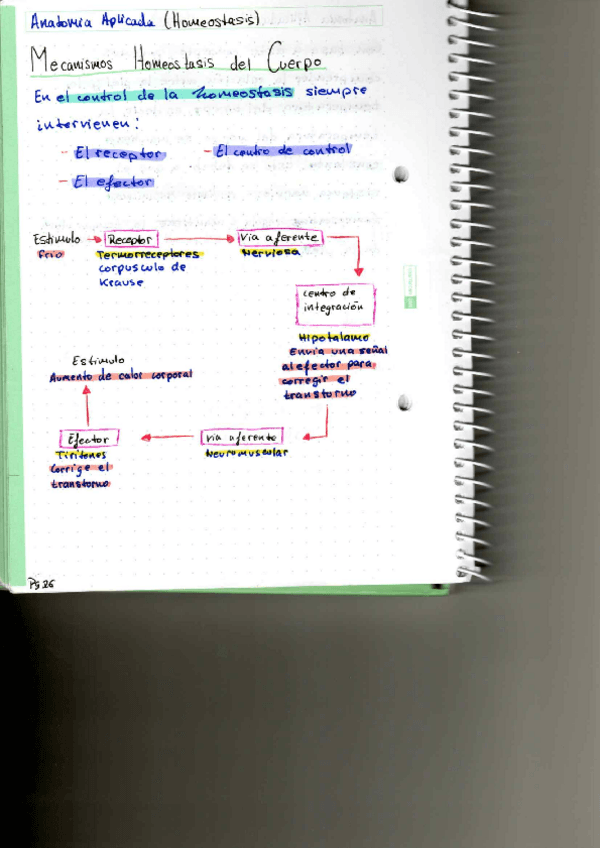 Anatomía Aplicada (Homeostasis)
Mecanismos Homeostasis del Cuerpo
En el control de la homeostasis siempre
intervienen:
- El receptor - El centro de control
- El efector
Estimulo Receptor Via aferente
Frio Termorreceptores Nerviosa
corpusculo de
Krause
centro de
integración
Hipotalamo
Envia una señal
al efector para
corregir el
transtorno
Estimulo
Aumento de calor corporal
Efector via aferente
Tiritones Neuromuscular
Corrige el
transtorno
Pg 26